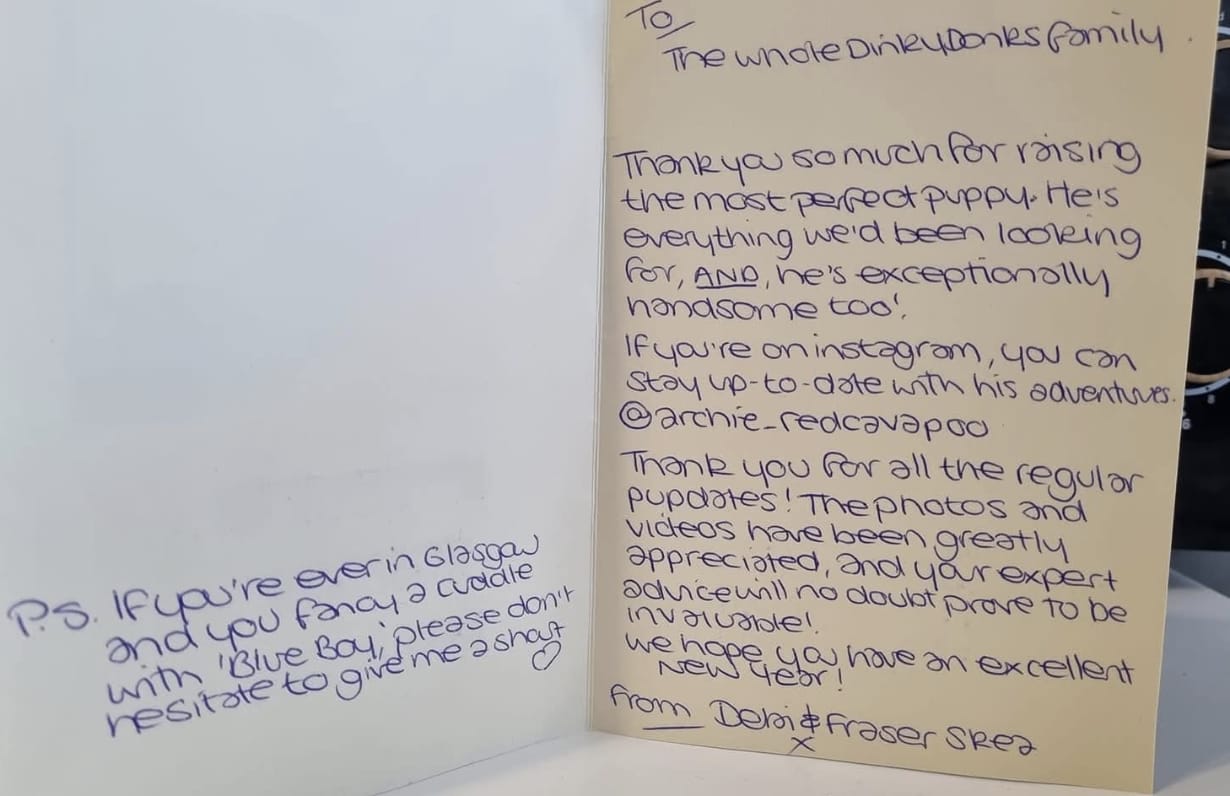 To/
The whole DinkyDonks family.
Thank you so much for raising
the most perfect puppy. He's
everything we'd been looking
for, AND, he's exceptionally
handsome too!
If you're on instagram, you can
stay up-to-date with his adventures.
@archie_redcavapoo
Thank you for all the regular
pupdates! The photos and
videos have been greatly
appreciated, and your expert
advice will no doubt prove to be
invaluable!
We hope you have an excellent
New Year!
from Debi & Fraser
x
P.S. If you're ever in Glasgow
and you fancy a cuddle
with 'Blue Boy,' please don't
hesitate to give me a shout
♡